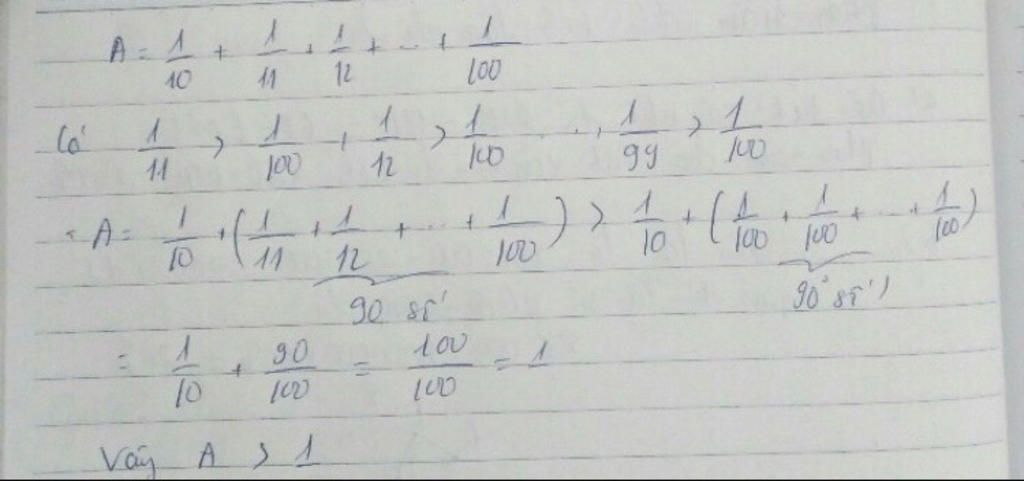 A = 1/10 + 1/11 + 1/12 + ... + 1/100
Có 1/11 > 1/100, 1/12 > 1/100 ..., 1/99 > 1/100
A = 1/10 + (1/11 + 1/12 + ... + 1/100) > 1/10 + (1/100 + 1/100 + ... + 1/100)
90 số 90 số
= 1/10 + 90/100 = 100/100 = 1
Vậy A > 1